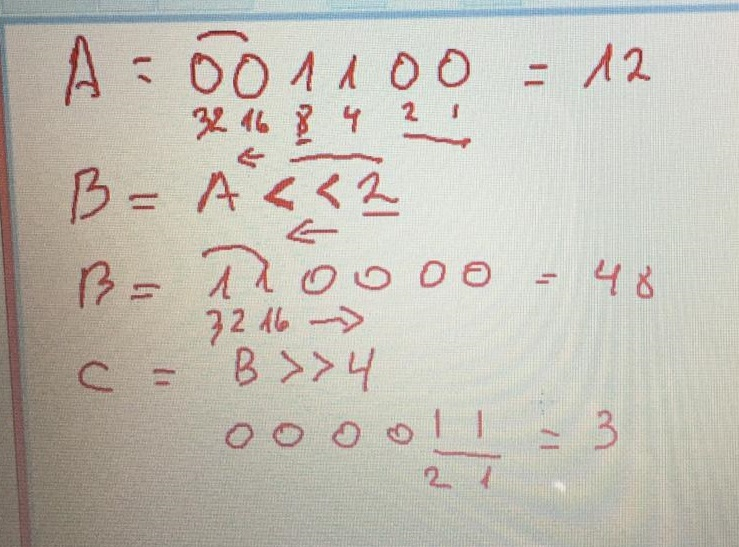 A = 001100 = 12
32 16 8 4 2 1
B = A << 2
B = 110000 = 48
32 16
C = B >> 4
000011 = 3
2 1